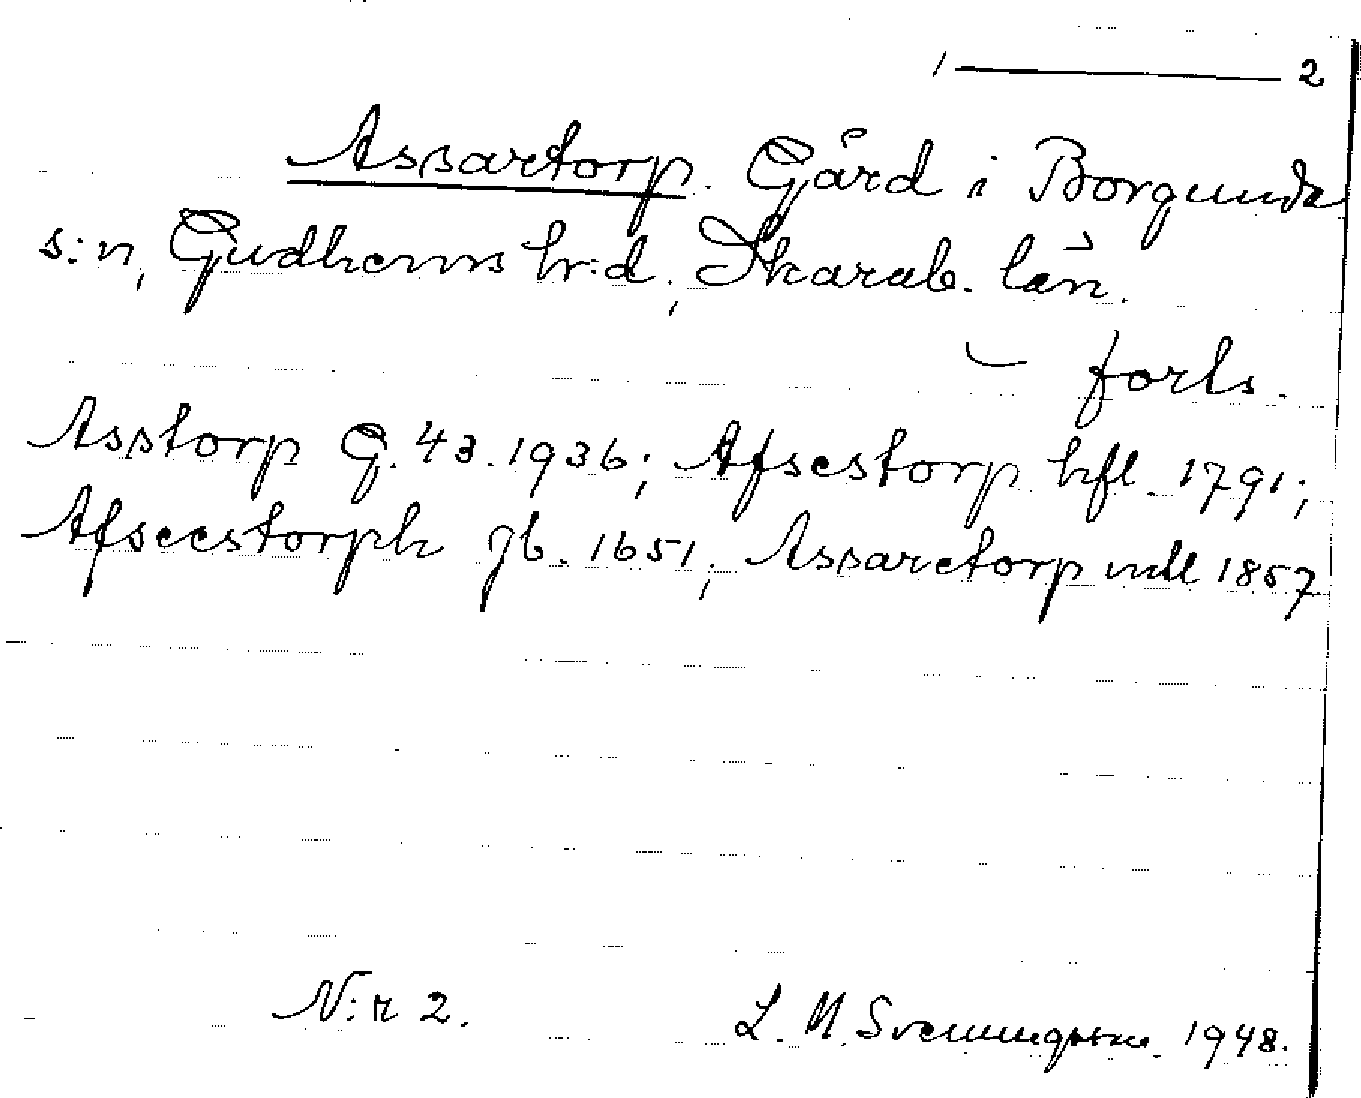 1 — 2
Assartorp. Gård i Borgunda
s:n, Gudhems hr:d, Skarab. län.
— forts.
Asstorp G. 43. 1936; Afsestorp hfl. 1791;
Afseestorph jb. 1651; Assaretorp mtl 1857
N:r 2. L. M. Svenungsson 1948.